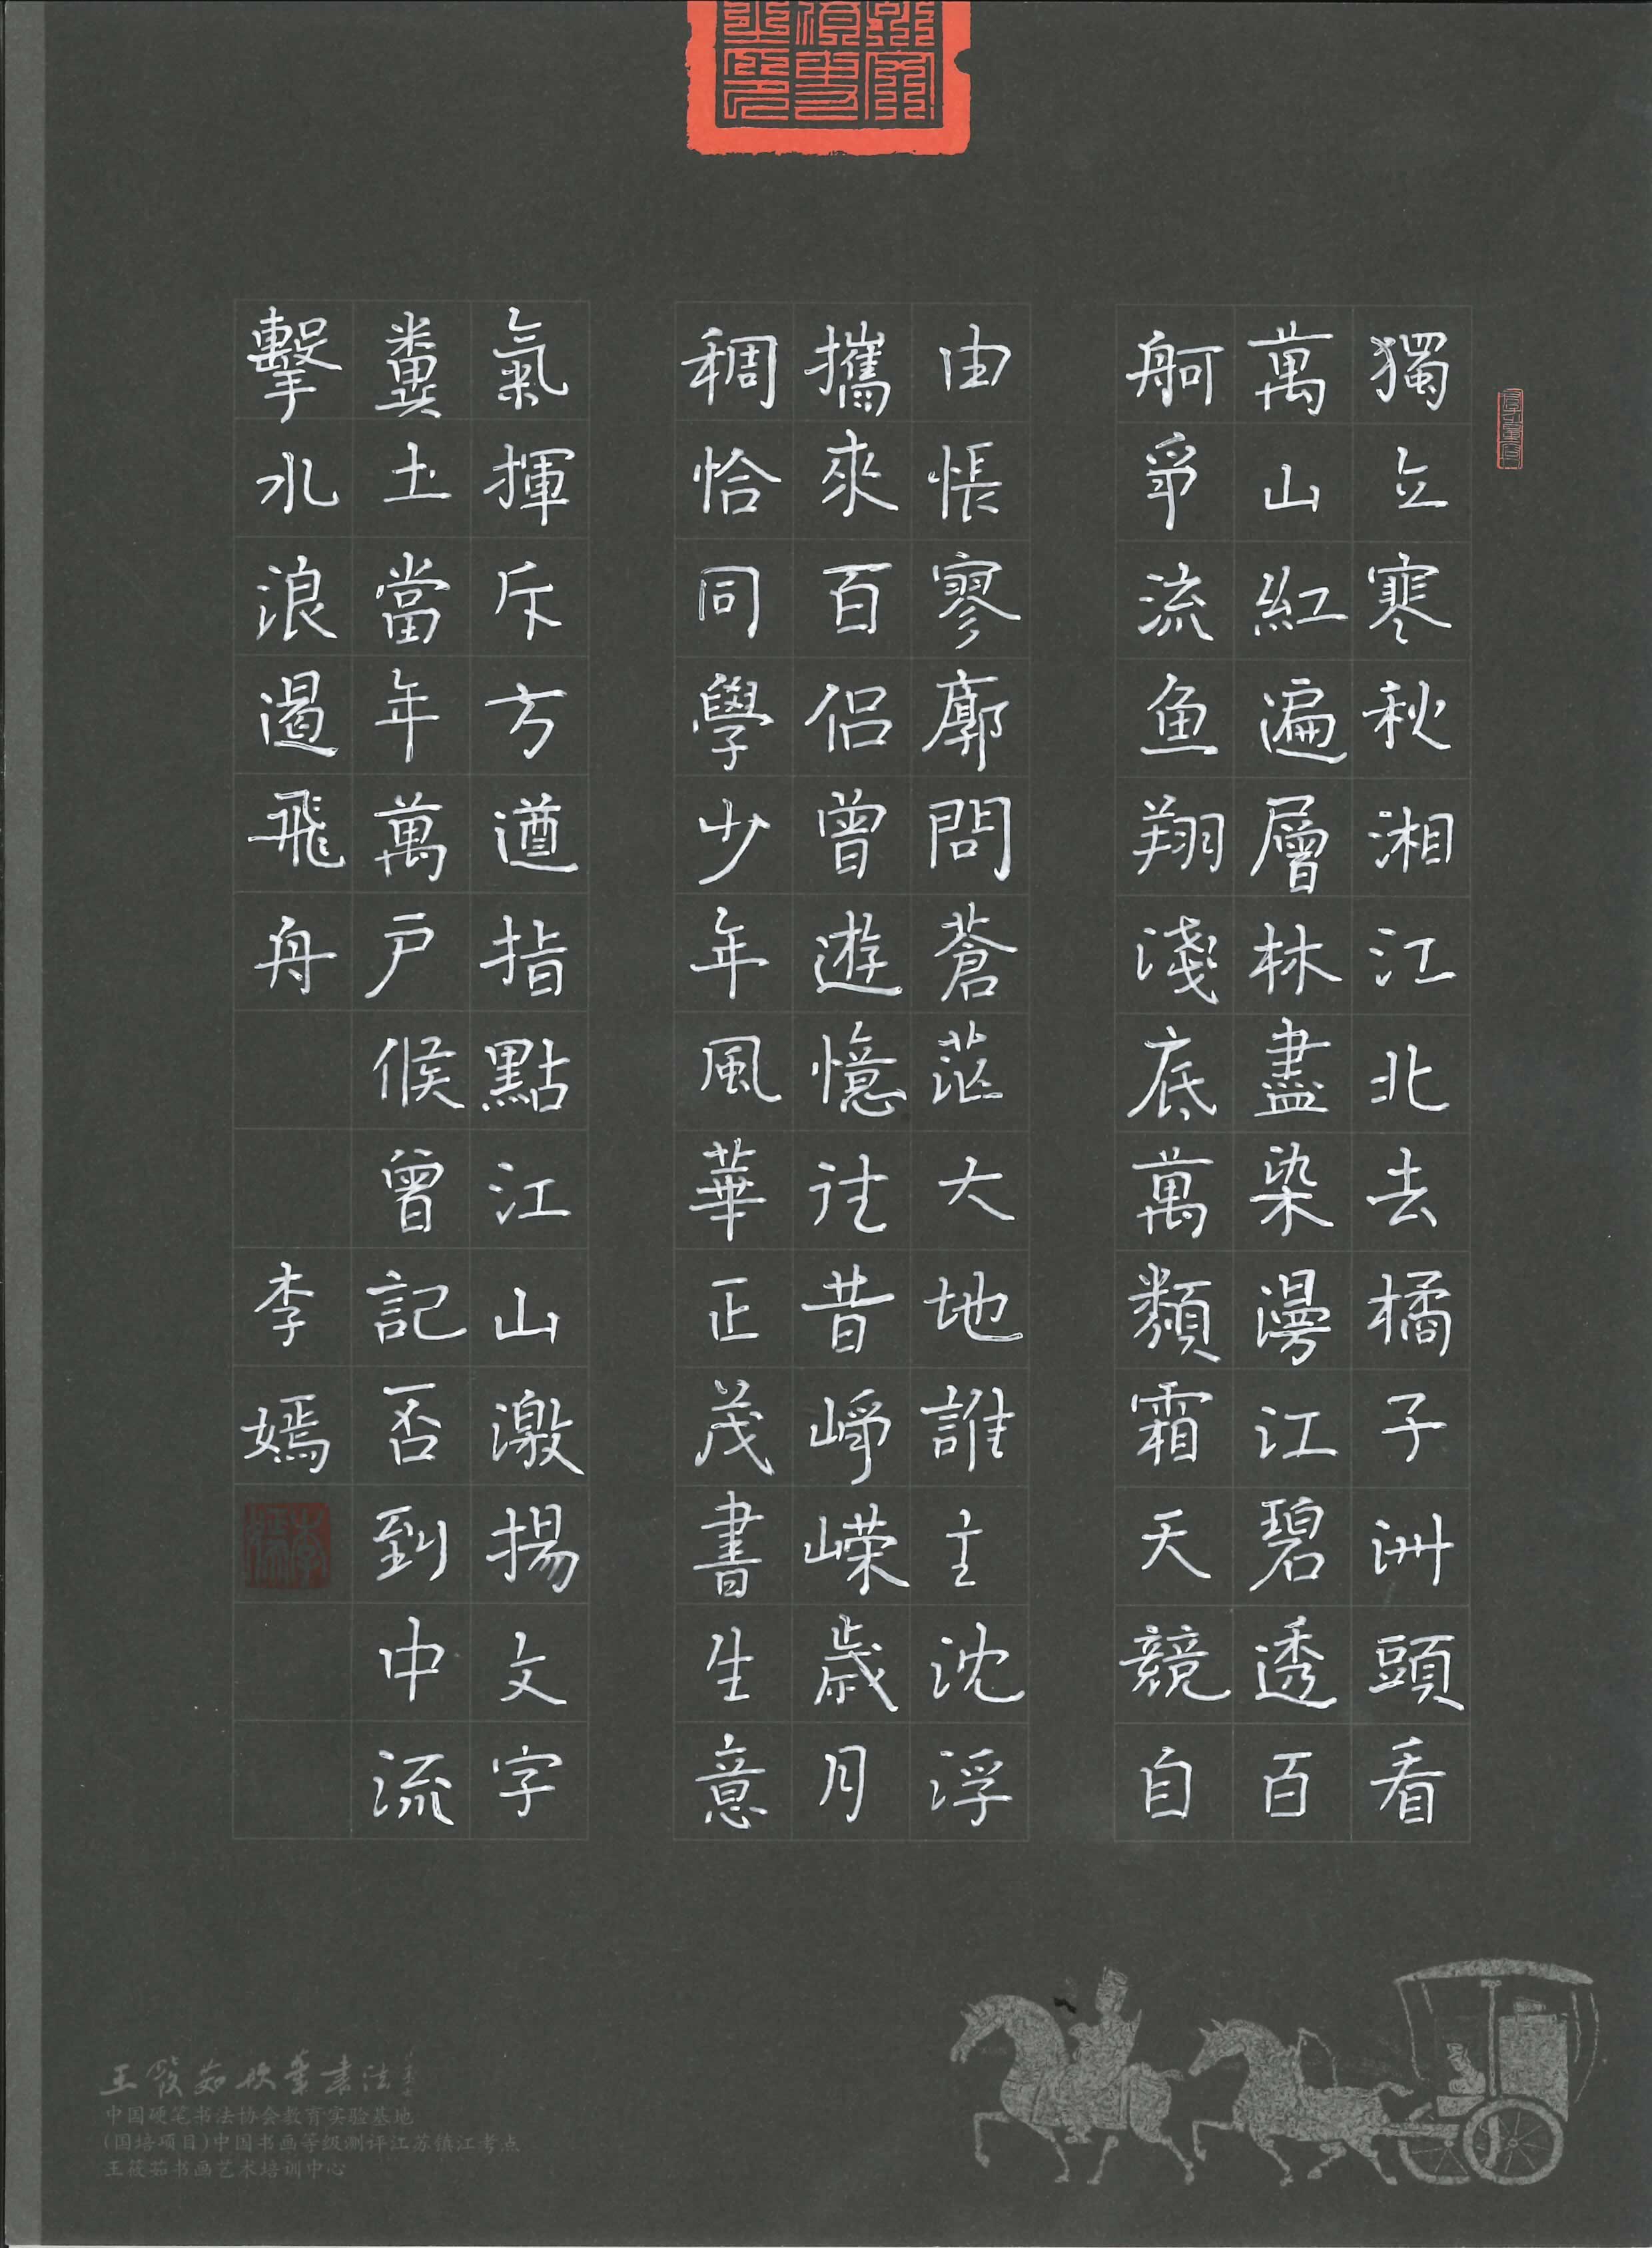 獨立寒秋湘江北去橘子洲頭看
萬山紅遍層林盡染漫江碧透百
舸爭流鱼翔淺底萬類霜天競自
由悵寥廓問蒼茫大地誰主沈浮
攜來百侣曾遊憶往昔崢嶸歲月
稠恰同學少年風華正茂書生意
氣揮斥方遒指點江山激揚文字
糞土當年萬戶候曾記否到中流
擊水浪遏飛舟
李嫣
王筱茹硬筆書法
中国硬笔书法协会教育实验基地
(国培项目)中国书画等级测评江苏镇江考点
王筱茹书画艺术培训中心